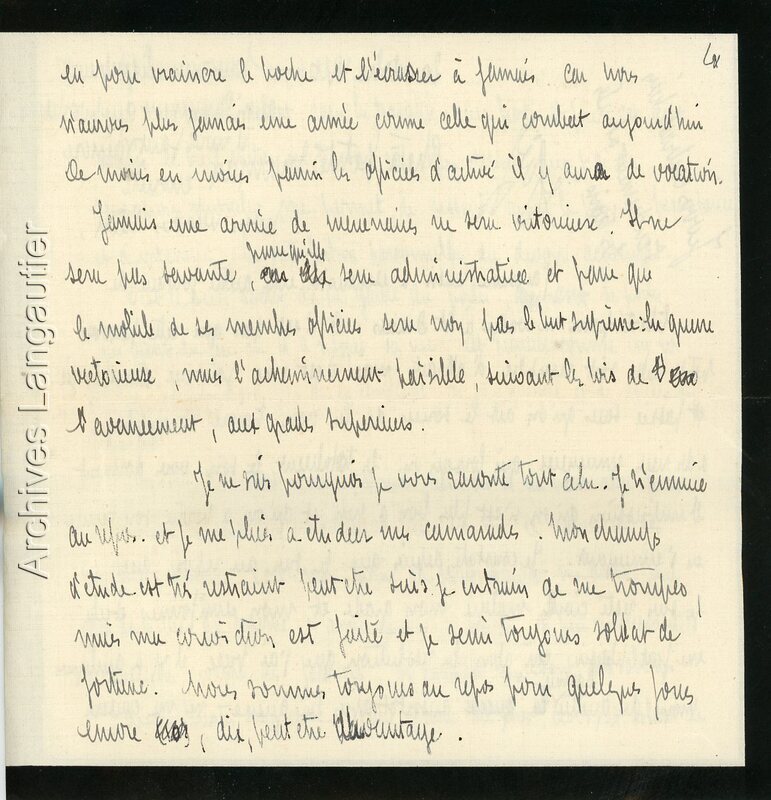 en pour vraincre le boche et l'écraser à jamais car nous
n'aurons plus jamais une armée comme celle qui combat aujourd'hui
De moins en moins parmi les officiers d'active il y aura de vocation.
Jamais une armée de mercenaires ne sera victorieuse. Elle ne
sera pas savante, parcequ'elle sera administrative et parce que
le mobile de ses membres officiers sera non pas le but suprême: la guerre
victorieuse, mais l'acheminement paisible, suivant les lois de
l'avancement, aux grades superieurs.
Je ne sais pourquoi je vous raconte tout cela. Je m'ennuie
au repos. et je me plais a etudier mes camarades. Mon champs
d'etude est très restraint peut etre suis je entrain de me tromper,
mais ma conviction est faite et je serai toujours soldat de
fortune. Nous sommes toujours au repos pour quelques jours
encore, dix, peut etre davantage.
Archives Langautier